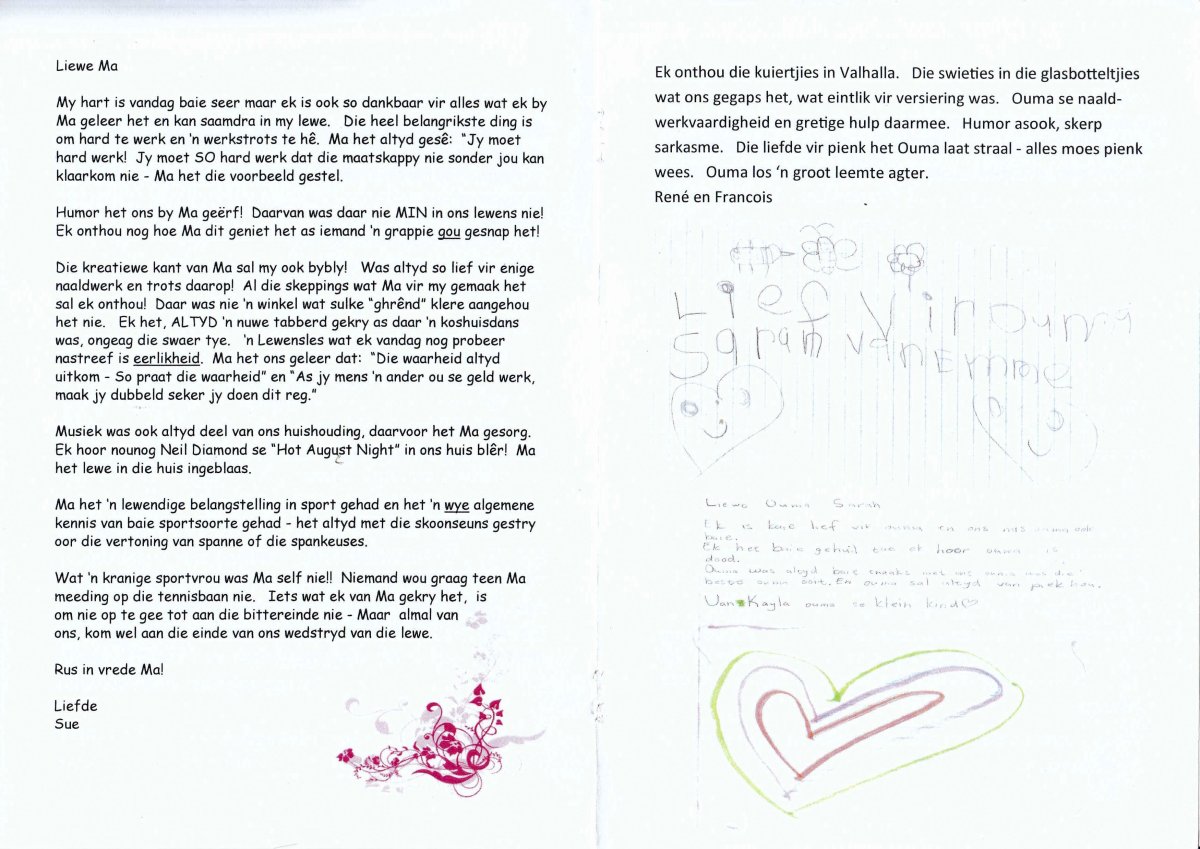 Liewe Ma
My hart is vandag baie seer maar ek is ook so dankbaar vir alles wat ek by
Ma geleer het en kan saamdra in my lewe. Die heel belangrikste ding is
om hard te werk en 'n werkstrots te hê. Ma het altyd gesê: "Jy moet
hard werk! Jy moet SO hard werk dat die maatskappy nie sonder jou kan
klaarkom nie - Ma het die voorbeeld gestel.
Humor het ons by Ma geërf! Daarvan was daar nie MIN in ons lewens nie!
Ek onthou nog hoe Ma dit geniet het as iemand 'n grappie gou gesnap het!
Die kreatiewe kant van Ma sal my ook bybly! Was altyd so lief vir enige
naaldwerk en trots daarop! Al die skeppings wat Ma vir my gemaak het
sal ek onthou! Daar was nie 'n winkel wat sulke "ghrênd" klere aangehou
het nie. Ek het, ALTYD 'n nuwe tabberd gekry as daar 'n koshuisdans
was, ongeag die swaer tye. 'n Lewensles wat ek vandag nog probeer
nastreef is eerlikheid. Ma het ons geleer dat: "Die waarheid altyd
uitkom - So praat die waarheid" en "As jy mens 'n ander ou se geld werk,
maak jy dubbeld seker jy doen dit reg."
Musiek was ook altyd deel van ons huishouding, daarvoor het Ma gesorg.
Ek hoor nounog Neil Diamond se "Hot August Night" in ons huis blêr! Ma
het lewe in die huis ingeblaas.
Ma het 'n lewendige belangstelling in sport gehad en het 'n wye algemene
kennis van baie sportsoorte gehad - het altyd met die skoonseuns gestry
oor die vertoning van spanne of die spankeuses.
Wat 'n kranige sportvrou was Ma self nie!! Niemand wou graag teen Ma
meeding op die tennisbaan nie. Iets wat ek van Ma gekry het, is
om nie op te gee tot aan die bittereinde nie - Maar almal van
ons, kom wel aan die einde van ons wedstryd van die lewe.
Rus in vrede Ma!
Liefde
Sue
Ek onthou die kuiertjies in Valhalla. Die swieties in die glasbotteltjies
wat ons gegaps het, wat eintlik vir versiering was. Ouma se naald-
werkvaardigheid en gretige hulp daarmee. Humor asook, skerp
sarkasme. Die liefde vir pienk het Ouma laat straal - alles moes pienk
wees. Ouma los 'n groot leemte agter.
René en Francois
Lief vir ouma
Sarah van
Liewe Ouma Sarah
Ek is baie lief vir ouma en ons
baie.
Ek het baie gehuil toe ek hoor ouma is
dood.
Ouma was altyd baie met ons ouma was die
beste ouma ooit. En ouma sal altyd van hou.
Van Kayla ouma se klein kind